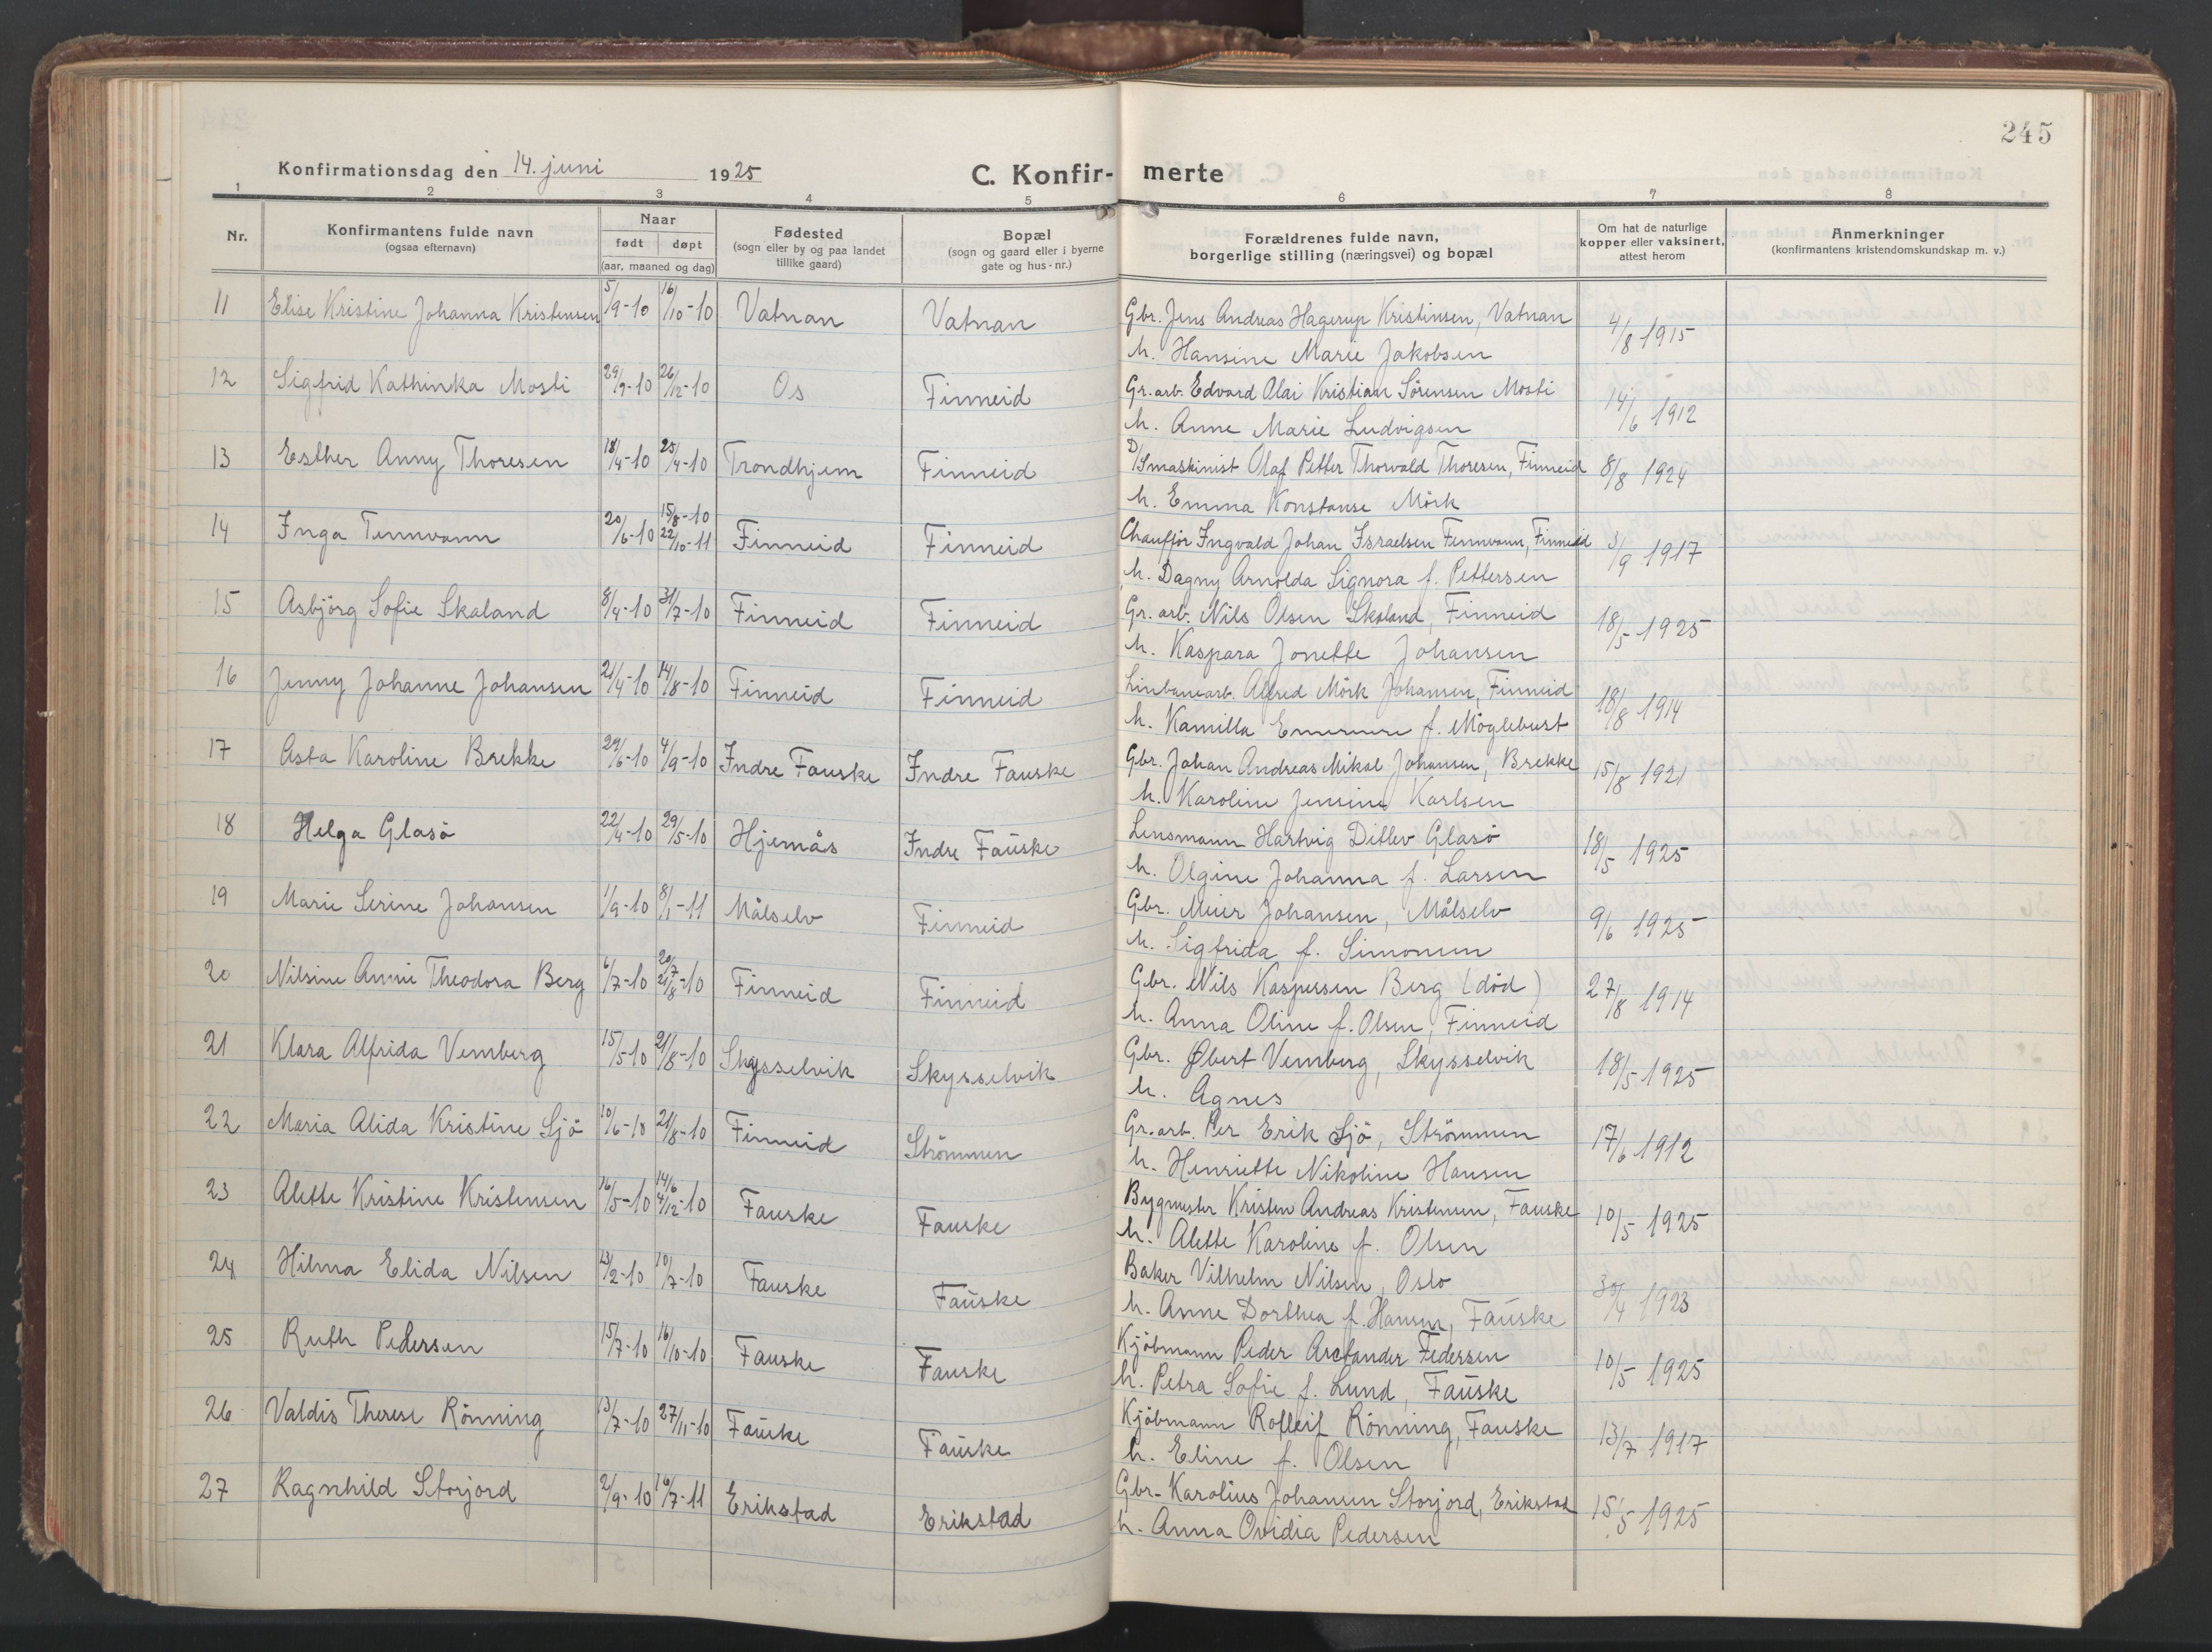 245
Konfirmationsdag den 14. juni 1925 C. Konfir- merte
1 2 3 4 5 6 7 8
Nr.
Konfirmantens fulde navn
(ogsaa efternavn)
Naar
født døpt
(aar, maaned og dag)
Fødested
(sogn eller by og paa landet
tillike gaard)
Bopæl
(sogn og gaard eller i byerne
gate og hus-nr.)
Forældrenes fulde navn,
borgerlige stilling (næringsvei) og bopæl
Om hat de naturlige
kopper eller vaksinert,
attest herom
Anmerkninger
(konfirmantens kristendomskundskap m. v.)
11 Elise Kristine Johanna Kristensen 5/9-10 16/10-10 Vatnan Vatnan Gbr. Jens Andreas Hagerup Kristinsen, Vatnan 4/8 1915
h. Hansine Marie Jakobsen
12 Sigfrid Kathinka Mosti 29/9-10 26/12-10 Os Finneid Gr.arb. Edvard Olai Kristian Sørensen Mosti 14/6 1912
h. Anne Marie Ludvigsen
13 Esther Anny Thoresen 18/4-10 25/4-10 Trondhjem Finneid D/Smaskinist Olaf Petter Thorvald Thoresen, Finneid 8/8 1924
h. Emma Konstanse Mörk
14 Inga Tennvann 20/6-10 15/8-10 22/10-11 Finneid Finneid Chauffør Ingvald Johan Israelsen Tennvann, Finneid 3/9 1917
h. Dagny Arnolda Signora f. Pettersen
15 Asbjörg Sofie Skaland 8/4-10 31/7-10 Finneid Finneid Gr. arb. Nils Olsen Skaland, Finneid 18/5 1925
h. Kaspara Jonette Johansen
16 Jenny Johanne Johansen 21/4-10 14/8-10 Finneid Finneid Linbanearb. Alfred Mörk Johansen, Finneid 18/8 1914
h. Kamilla f. Möglebust
17 Asta Karoline Brekke 29/6-10 4/9-10 Indre Fauske Indre Fauske Gbr. Johan Andreas Mikal Johansen, Brekke 15/8 1921
h. Karoline Jensine Karlsen
18 Helga Glasö 22/4-10 29/5-10 Hjemås Indre Fauske Lensmann Hartvig Ditlev Glasö 18/5 1925
h. Olgine Johanna f. Larsen
19 Marie Serine Johansen 1/9-10 8/1-11 Målselv Finneid Gbr. Meier Johansen, Målselv 9/6 1925
h. Sigfrida f. Simonsen
20 Nilsine Anni Theodora Berg 6/7-10 20/7 21/8-10 Finneid Finneid Gbr. Nils Kaspersen Berg (död) 27/8 1914
h. Anna Oline f. Olsen, Finneid
21 Klara Alfrida Vemberg 15/5-10 21/8-10 Skysselvik Skysselvik Gbr. Øbert Vemberg, Skysselvik 18/5 1925
h. Agnes
22 Maria Alida Kristine Sjö 10/6-10 21/8-10 Finneid Strömmen Gr.arb. Per Erik Sjö, Strömmen 17/6 1912
h. Henriette Nikoline Hansen
23 Alette Kristine Kristensen 16/5-10 14/6 4/12-10 Fauske Fauske Bygmester Kristen Andreas Kristensen, Fauske 10/5 1925
h. Alette Karoline f. Olsen
24 Hilma Elida Nilsen 13/2-10 10/7-10 Fauske Fauske Baker Vilhelm Nilsen, Oslo 30/4 1923
h. Anne Dorthea f. Hansen, Fauske
25 Ruth Pedersen 15/7-10 16/10-10 Fauske Fauske Kjöbmann Peder Arctander Pedersen 10/5 1925
h. Petra Sofie f. Lund, Fauske
26 Valdis Therese Rönning 13/7-10 27/11-10 Fauske Fauske Kjöbmann Rolleif Rönning, Fauske 13/7 1917
h. Eline f. Olsen
27 Ragnhild Storjord 2/9-10 16/7-11 Erikstad Erikstad Gbr. Karolius Johansen Storjord, Erikstad 15/5 1925
h. Anna Ovidia Pedersen